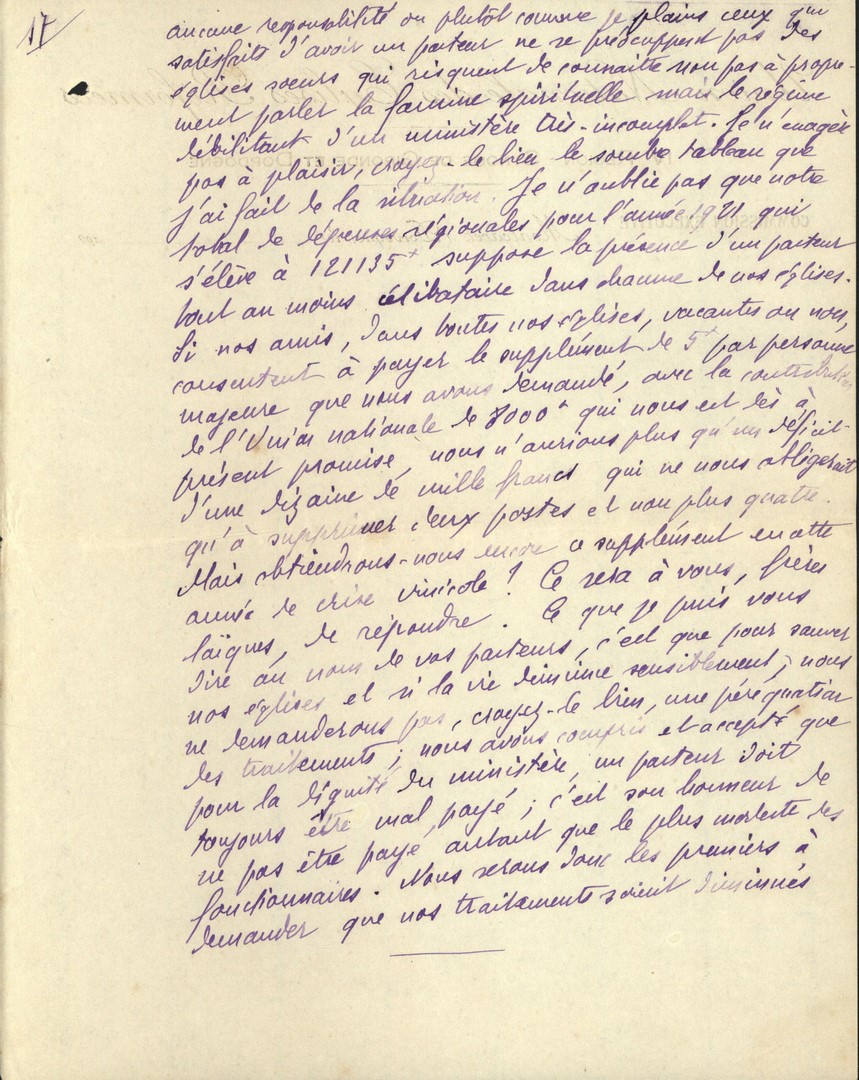 17
aucune responsabilité ou plutôt comme je plains ceux qui
satisfaits d'avoir un pasteur ne se préoccupent pas des
églises soeurs qui risquent de connaître non pas à propre-
ment parler la famine spirituelle mais le régime
débilitant d'un ministère très-incomplet. Je n'exagère
pas à plaisir, croyez-le bien le sombre tableau que
j'ai fait de la situation. Je n'oublie pas que notre
total de dépenses régionales pour l'année 1921 qui
s'élève à 121135f suppose la présence d'un pasteur
tout au moins célibataire dans chacune de nos églises.
Si nos amis, dans toutes nos églises, vacantes ou non,
consentent à payer le supplément de 5f par personne
majeure que nous avons demandé, avec la contribution
de l'Union nationale de 8000f qui nous est dès à
présent promise, nous n'aurions plus qu'un déficit
d'une dizaine de mille francs qui ne nous obligerait
qu'à supprimer deux postes et non plus quatre.
Mais obtiendrons-nous encore ce supplément en cette
année de crise vinicole ? Ce sera à vous, frères
laïques, de répondre. Ce que je puis vous
dire au nom de vos pasteurs, c'est que pour sauver
nos églises et si la vie diminue sensiblement, nous
ne demanderons pas, croyez-le bien, une péréquation
des traitements ; nous avons compris et accepté que
pour la dignité du ministère, un pasteur doit
toujours être mal payé ; c'est son honneur de
ne pas être payé autant que le plus modeste des
fonctionnaires. Nous serons donc les premiers à
demander que nos traitements soient diminués